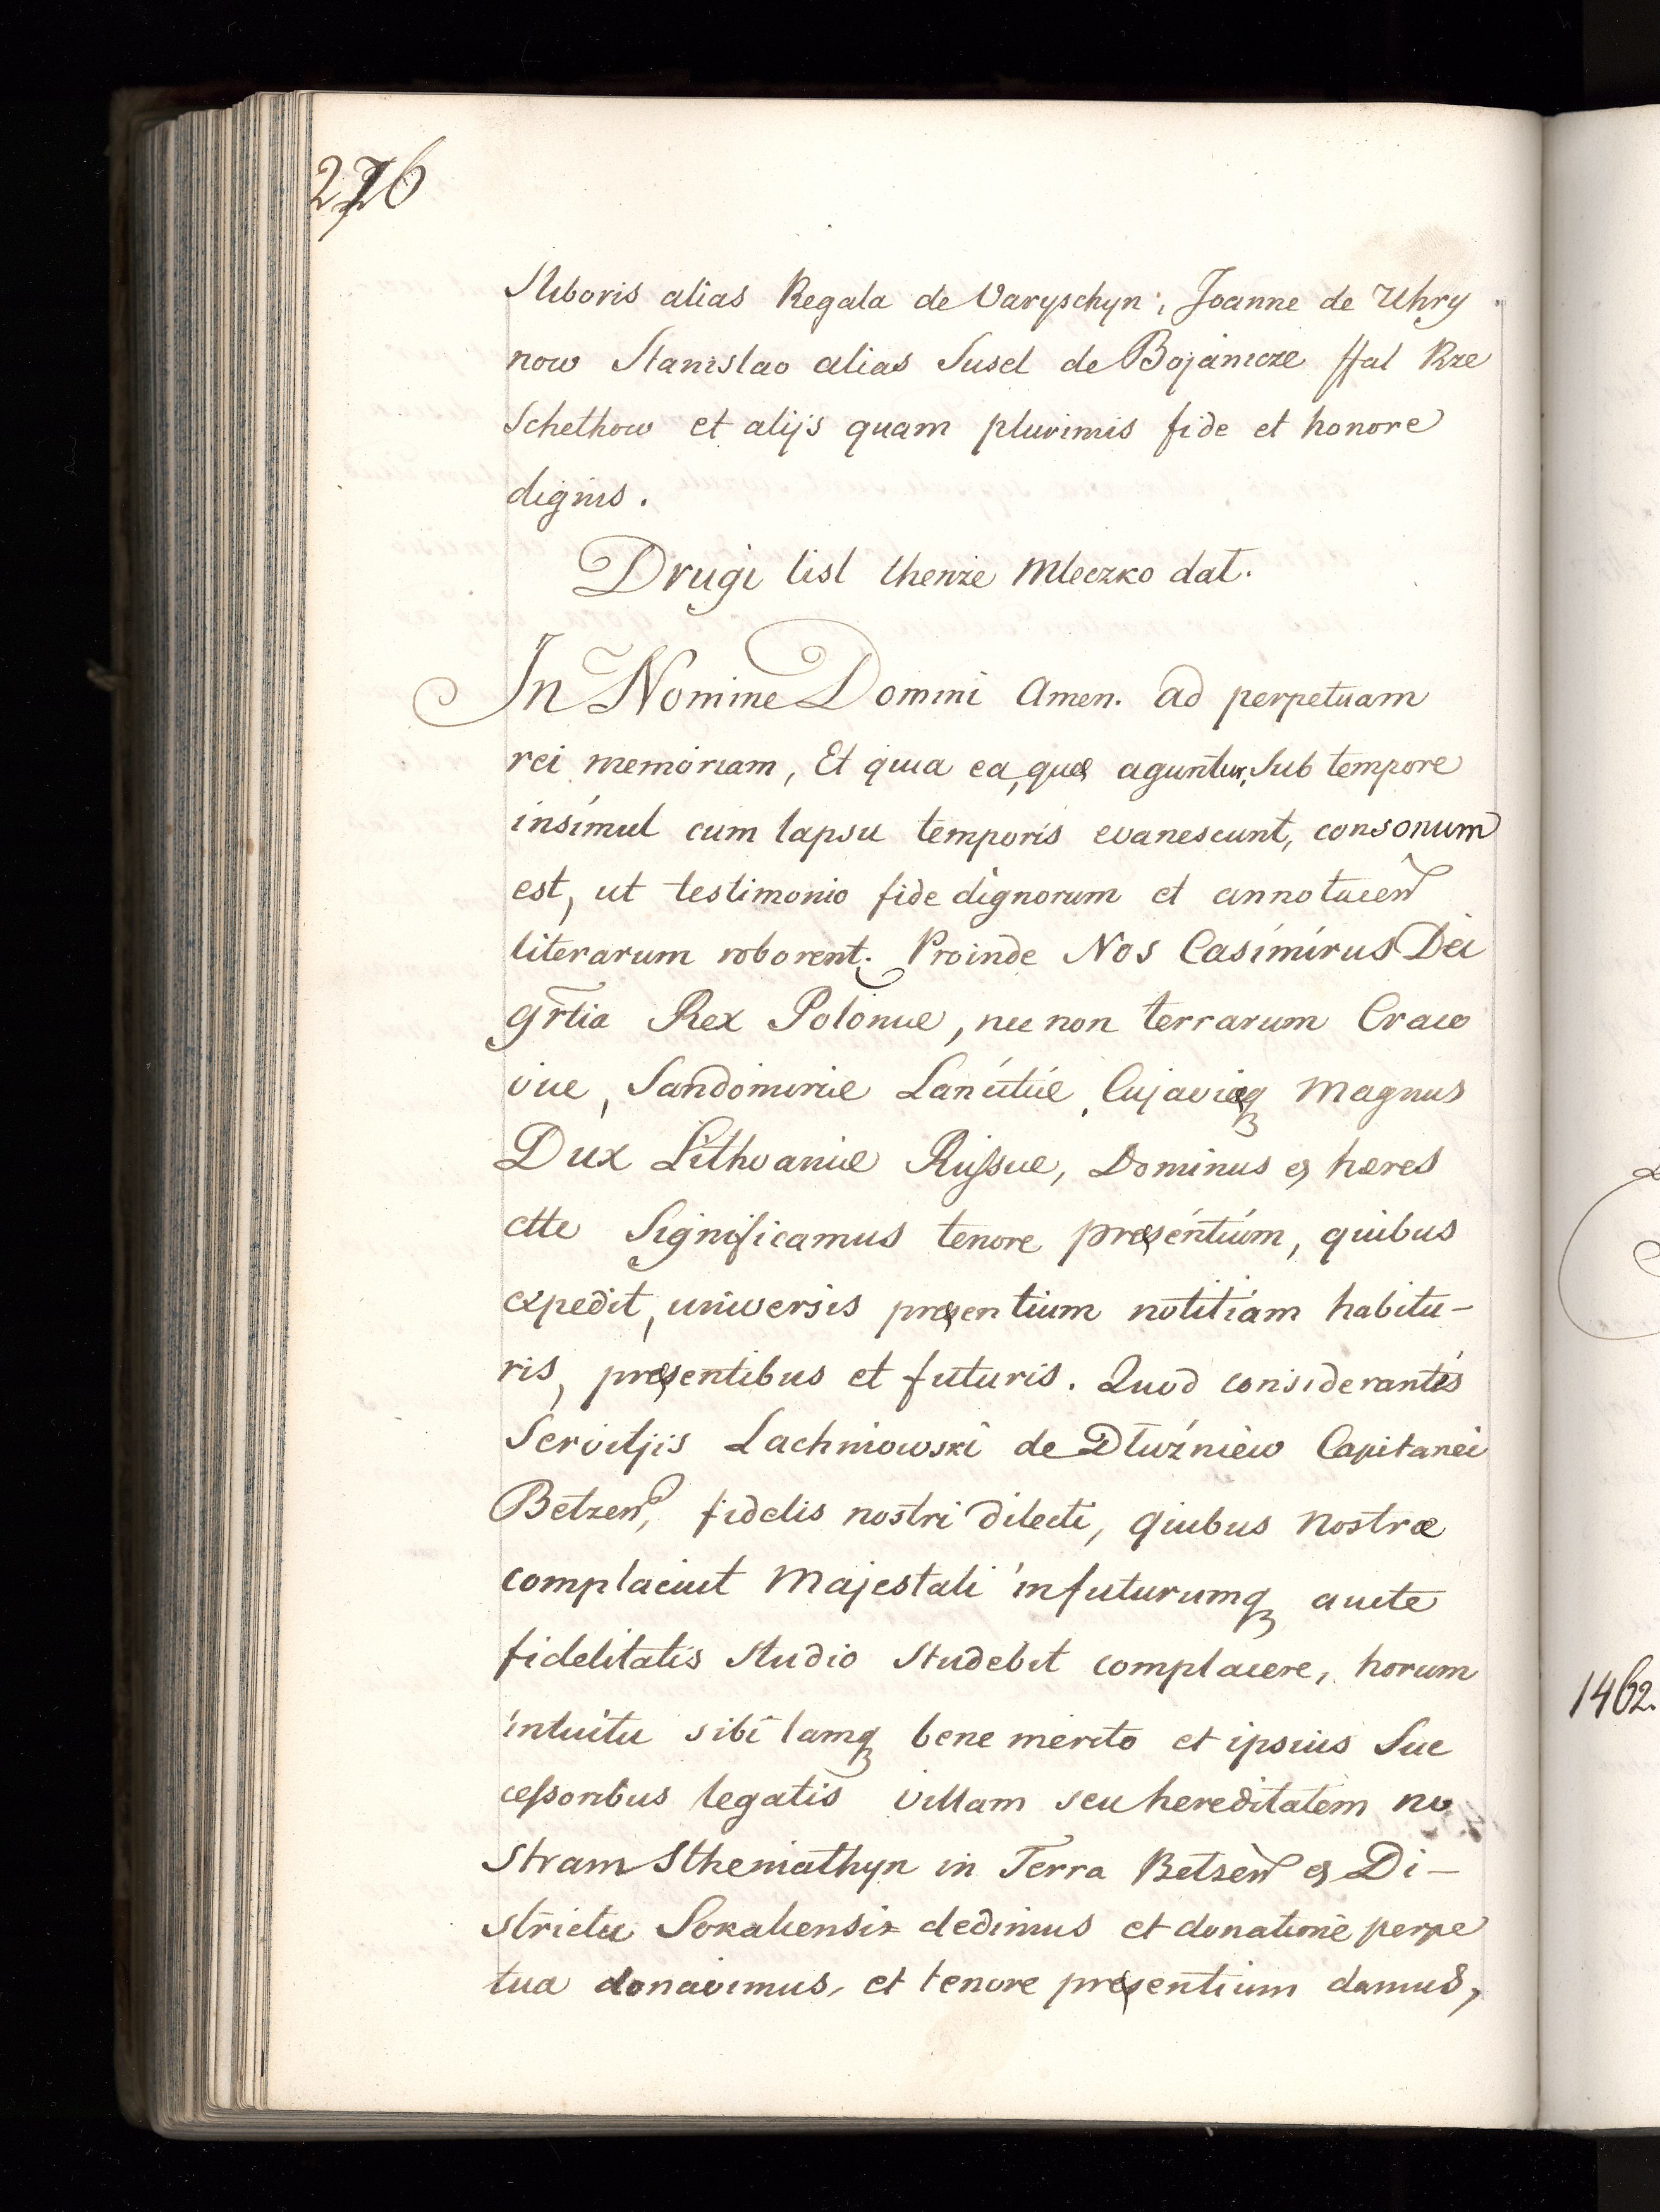 276
Stiboris alias Regala de Varyschyn; Joanne de Uhry
now Stanislao alias Susel de Bojanicze ffal Rze
Schethow et alijs quam plurimis fide et honore
dignis.
Drugi list thenże Mleczko dat.
In Nomine Domini Amen. Ad perpetuam
rei memoriam, Et quia ea, quæ aguntur, Sub tempore
insimul cum lapsu temporis evanescunt, consonum
est, ut testimonio fide dignorum et annotacen̄
literarum roborent. Proinde Nos Casimirus Dei
gr̄tia Rex Poloniæ, nec non terrarum Craco
viæ, Sandomiriæ Lancitiæ, Cujaviæq Magnus
Dux Lithvaniæ Russiæ, Dominus & hæres
ette Significamus tenore præsentium, quibus
expedit, universis præsentium notitiam habitu-
ris, præsentibus et futuris. Quod considerantes
Servitijis Lachniowski de Dłużniew Capitanei
Betzen, fidelis nostri dilecti, quibus nostræ
complacuit Majestati infuturumq aucte
fidelitatis studio studebit complacere, horum
intuitu sibi tamq bene merito et ipsius Suc
cessoribus legatis villam seu hereditatem no
stram Stheniathyn in Terra Betzen & Di-
strictu Sokaliensis dedimus et donatione perpe
tua donavimus, et tenore præsentium damus,
1462.